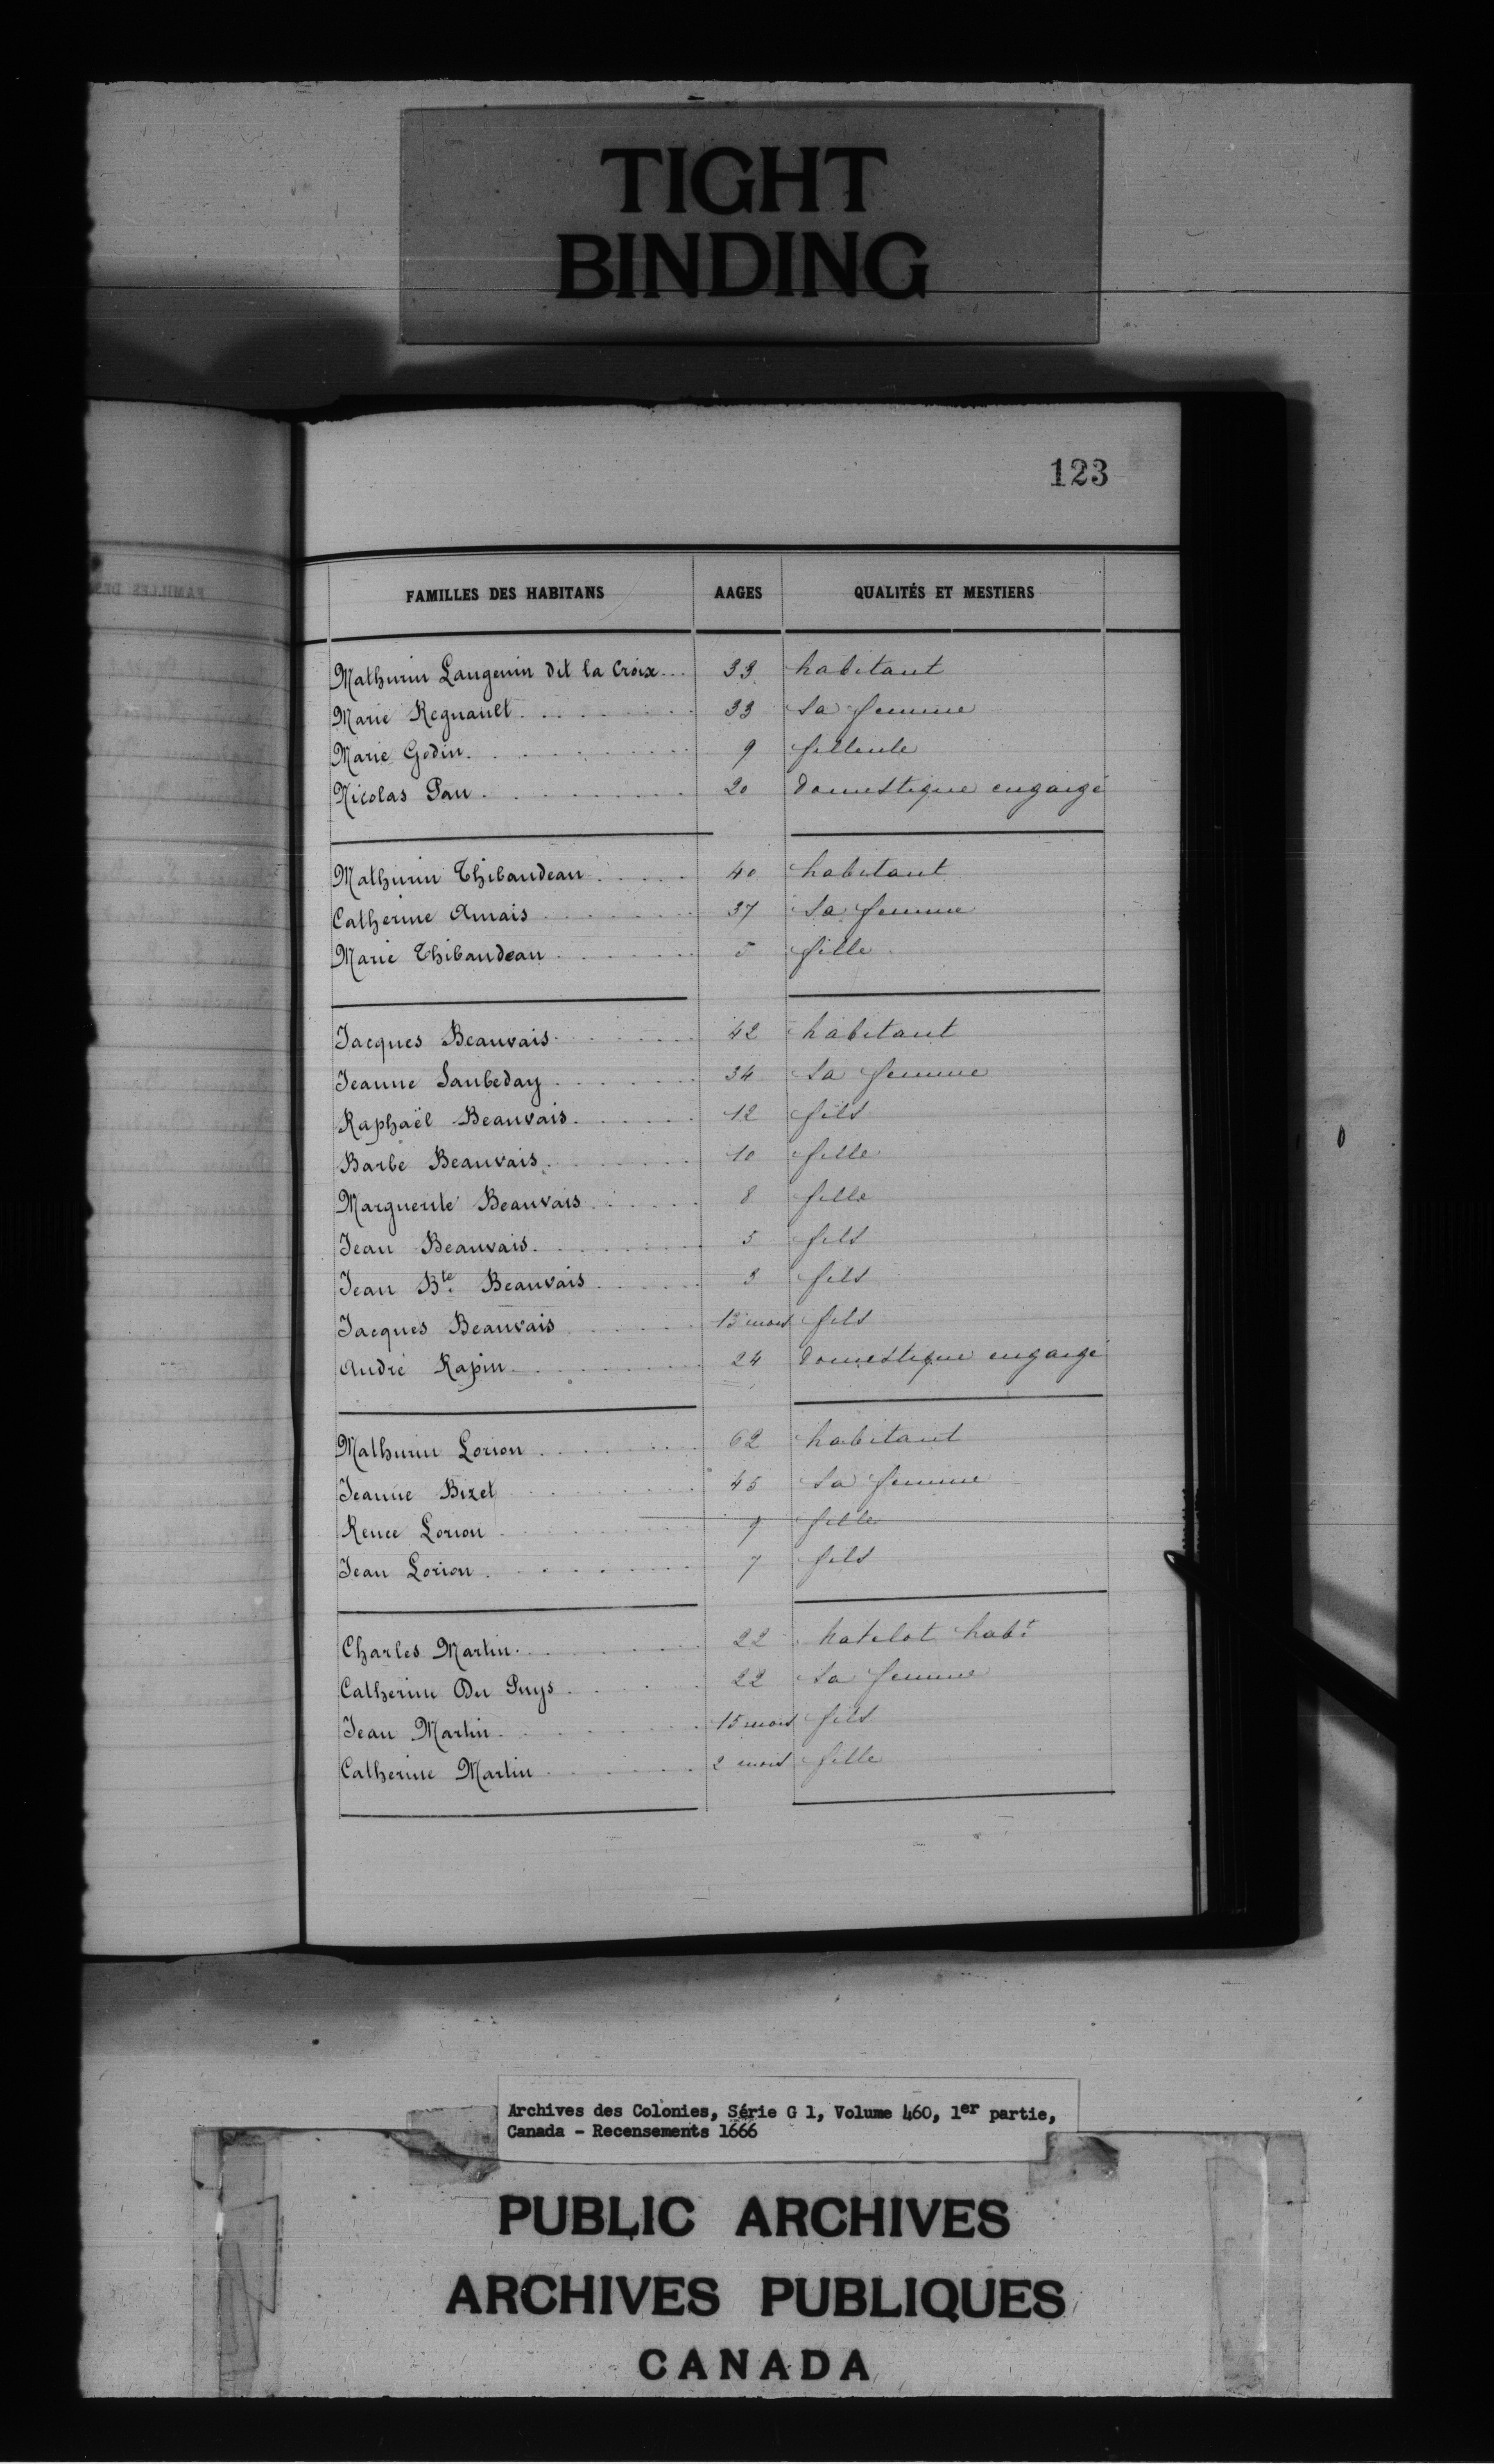 TIGHT
BINDING
123
FAMILLES DES HABITANS AAGES QUALITÉS ET MESTIERS
Mathurin Langevin dit la Croix 33 habitant
Marie Regnault 33 sa femme
Marie Godin 9 filleule
Nicolas Pau 20 domestique engaigé
Mathurin Thibaudeau 40 habitant
Catherine Aurais 37 sa femme
Marie Thibaudeau 5 fille
Jacques Beauvais 42 habitant
Jeanne Saubeday 34 sa femme
Raphaël Beauvais 12 fils
Barbe Beauvais 10 fille
Marguerite Beauvais 8 fille
Jean Beauvais 5 fils
Jean Bte. Beauvais 3 fils
Jacques Beauvais 13 mois fils
André Rapin 24 domestique engaigé
Mathurin Lorion 62 habitant
Jeanne Bizet 45 sa femme
Renee Lorion 9 fille
Jean Lorion 7 fils
Charles Martin 22 matelot habt
Catherine Du Puys 22 sa femme
Jean Martin 15 mois fils
Catherine Martin 2 mois fille
Archives des Colonies, Série G 1, Volume 460, 1er partie,
Canada - Recensements 1666
PUBLIC ARCHIVES
ARCHIVES PUBLIQUES
CANADA